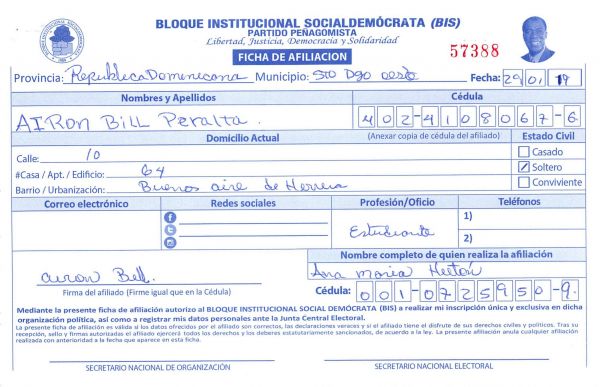 BLOQUE INSTITUCIONAL SOCIALDEMÓCRATA (BIS)
PARTIDO PEÑAGOMISTA
Libertad, Justicia, Democracia y Solidaridad
FICHA DE AFILIACION
57388
Provincia: Republica Dominicana Municipio: Sto Dgo oeste Fecha: 29/01/19
Nombres y Apellidos Cédula
AIRon BILL Peralta. 402-4108067-6
Domicilio Actual (Anexar copia de cédula del afiliado) Estado Civil
Calle: 10 Casado
#Casa / Apt. / Edificio: 64 Soltero
Barrio / Urbanización: Buenos aire de Herrera Conviviente
Correo electrónico Redes sociales Profesión/Oficio Teléfonos
1)
Estudiante
2)
Nombre completo de quien realiza la afiliación
airon Bill. Ana maria
Firma del afiliado (Firme igual que en la Cédula) Cédula: 001-0725950-9.
Mediante la presente ficha de afiliación autorizo al BLOQUE INSTITUCIONAL SOCIAL DEMÓCRATA (BIS) a realizar mi inscripción única y exclusiva en dicha
organización política, así como a registrar mis datos personales ante la Junta Central Electoral.
La presente ficha de afiliación es válida si los datos ofrecidos por el afiliado son correctos, las declaraciones veraces y si el afiliado tiene el disfrute de sus derechos civiles y políticos. Tras su
recepción, sello y firmas autorizadas el afiliado ejercerá todos los derechos y los deberes estatutariamente sancionados, de acuerdo a la ley. La presente afiliación anula cualquier afiliación
realizada con anterioridad a la fecha que aparece en esta ficha.
SECRETARIO NACIONAL DE ORGANIZACIÓN SECRETARIO NACIONAL ELECTORAL